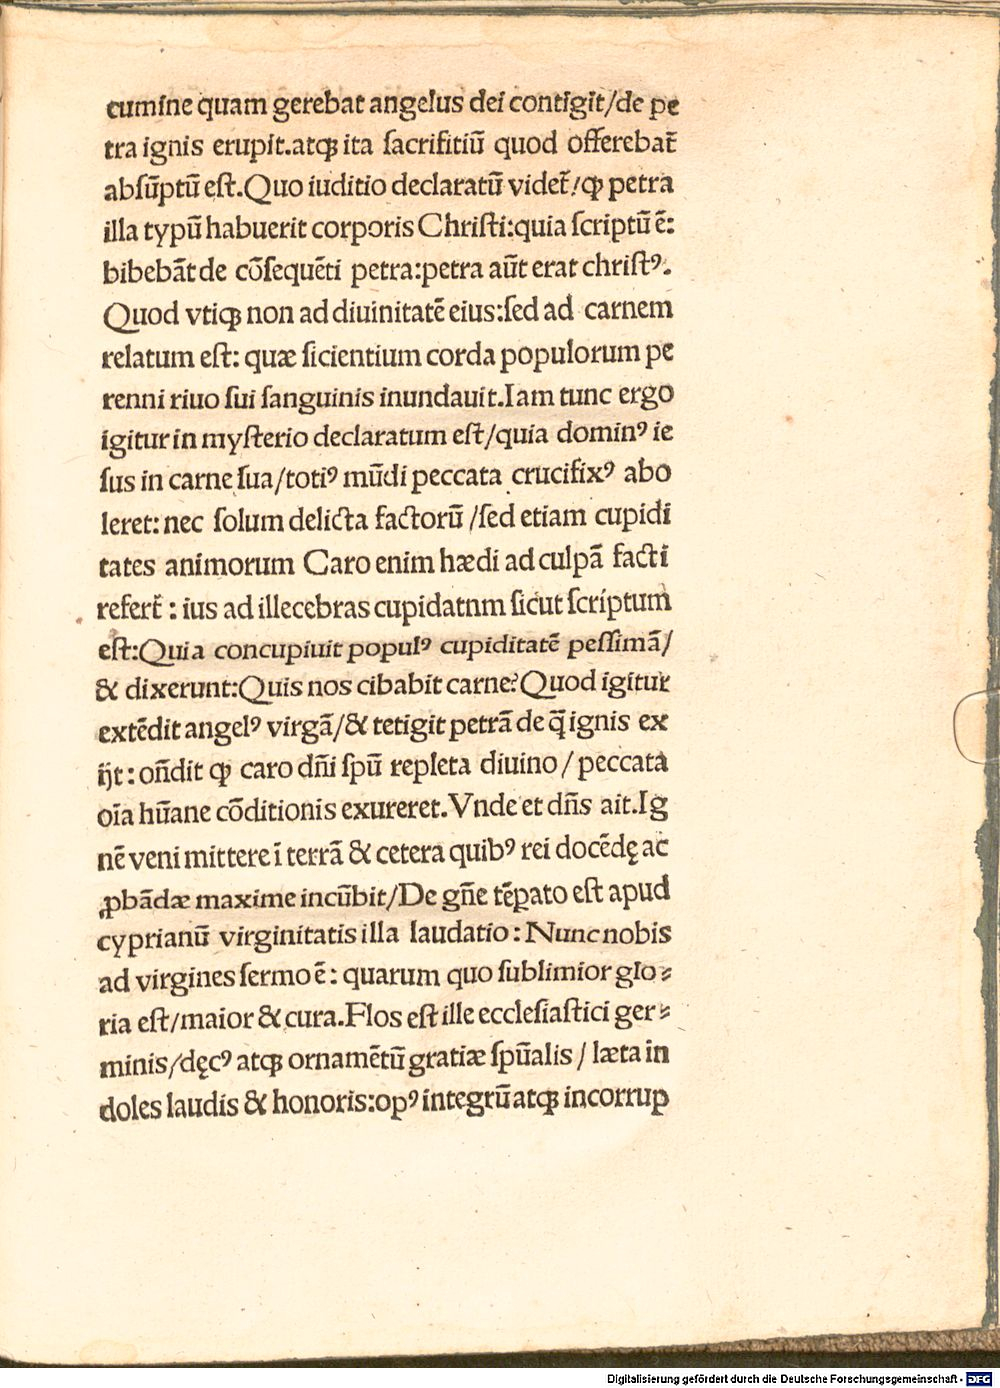 cumine quam gerebat angelus dei contigit/de pe
tra ignis erupit.atqꝫ ita ſacrifitiū quod offerebat̄
abſūptū eſt.Quo iuditio declaratū videt̄/ꝙ petra
illa typū habuerit corporis Chriſti:quia ſcriptū ē:
bibebāt de cōſequēti petra:petra aūt erat chriſtꝰ.
Quod vtiqꝫ non ad diuinitatē eius:ſed ad carnem
relatum eſt: quæ ſicientium corda populorum pe
renni riuo ſui ſanguinis inundauit.Iam tunc ergo
igitur in myſterio declaratum eſt/quia dominꝰ ie
ſus in carne ſua/totiꝰ mūdi peccata crucifixꝰ abo
leret: nec ſolum delicta factorū /ſed etiam cupidi
tates animorum Caro enim hædi ad culpā facti
refert̄ : ius ad illecebras cupidatnm ſicut ſcriptum
eſt:Quia concupiuit populꝰ cupiditatē peſſimā/
& dixerunt:Quis nos cibabit carne?Quod igitur
extēdit angelꝰ virgā/& tetigit petrā de q̄ ignis ex
ijt: oñdit ꝙ caro dñi ſpū repleta diuino/peccata
oīa hūane cōditionis exureret.Vnde et dñs ait.Ig
nē veni mittere ī terrā & cetera quibꝰ rei docēdę ac
ꝓbādæ maxime incūbit/De gñe tēꝑato eſt apud
cyprianū virginitatis illa laudatio: Nunc nobis
ad virgines ſermo ē: quarum quo ſublimior glo⸗
ria eſt/maior & cura.Flos eſt ille eccleſiaſtici ger⸗
minis/dęcꝰ atqꝫ ornamētū gratiæ ſpūalis/ læta in
doles laudis & honoris:opꝰ integrū atqꝫ incorrup
Digitalisierung gefördert durch die Deutsche Forschungsgemeinschaft - DFG